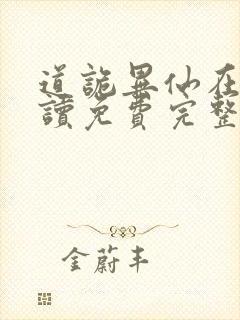 道詭異仙在
讀免費完整
金蔚丰